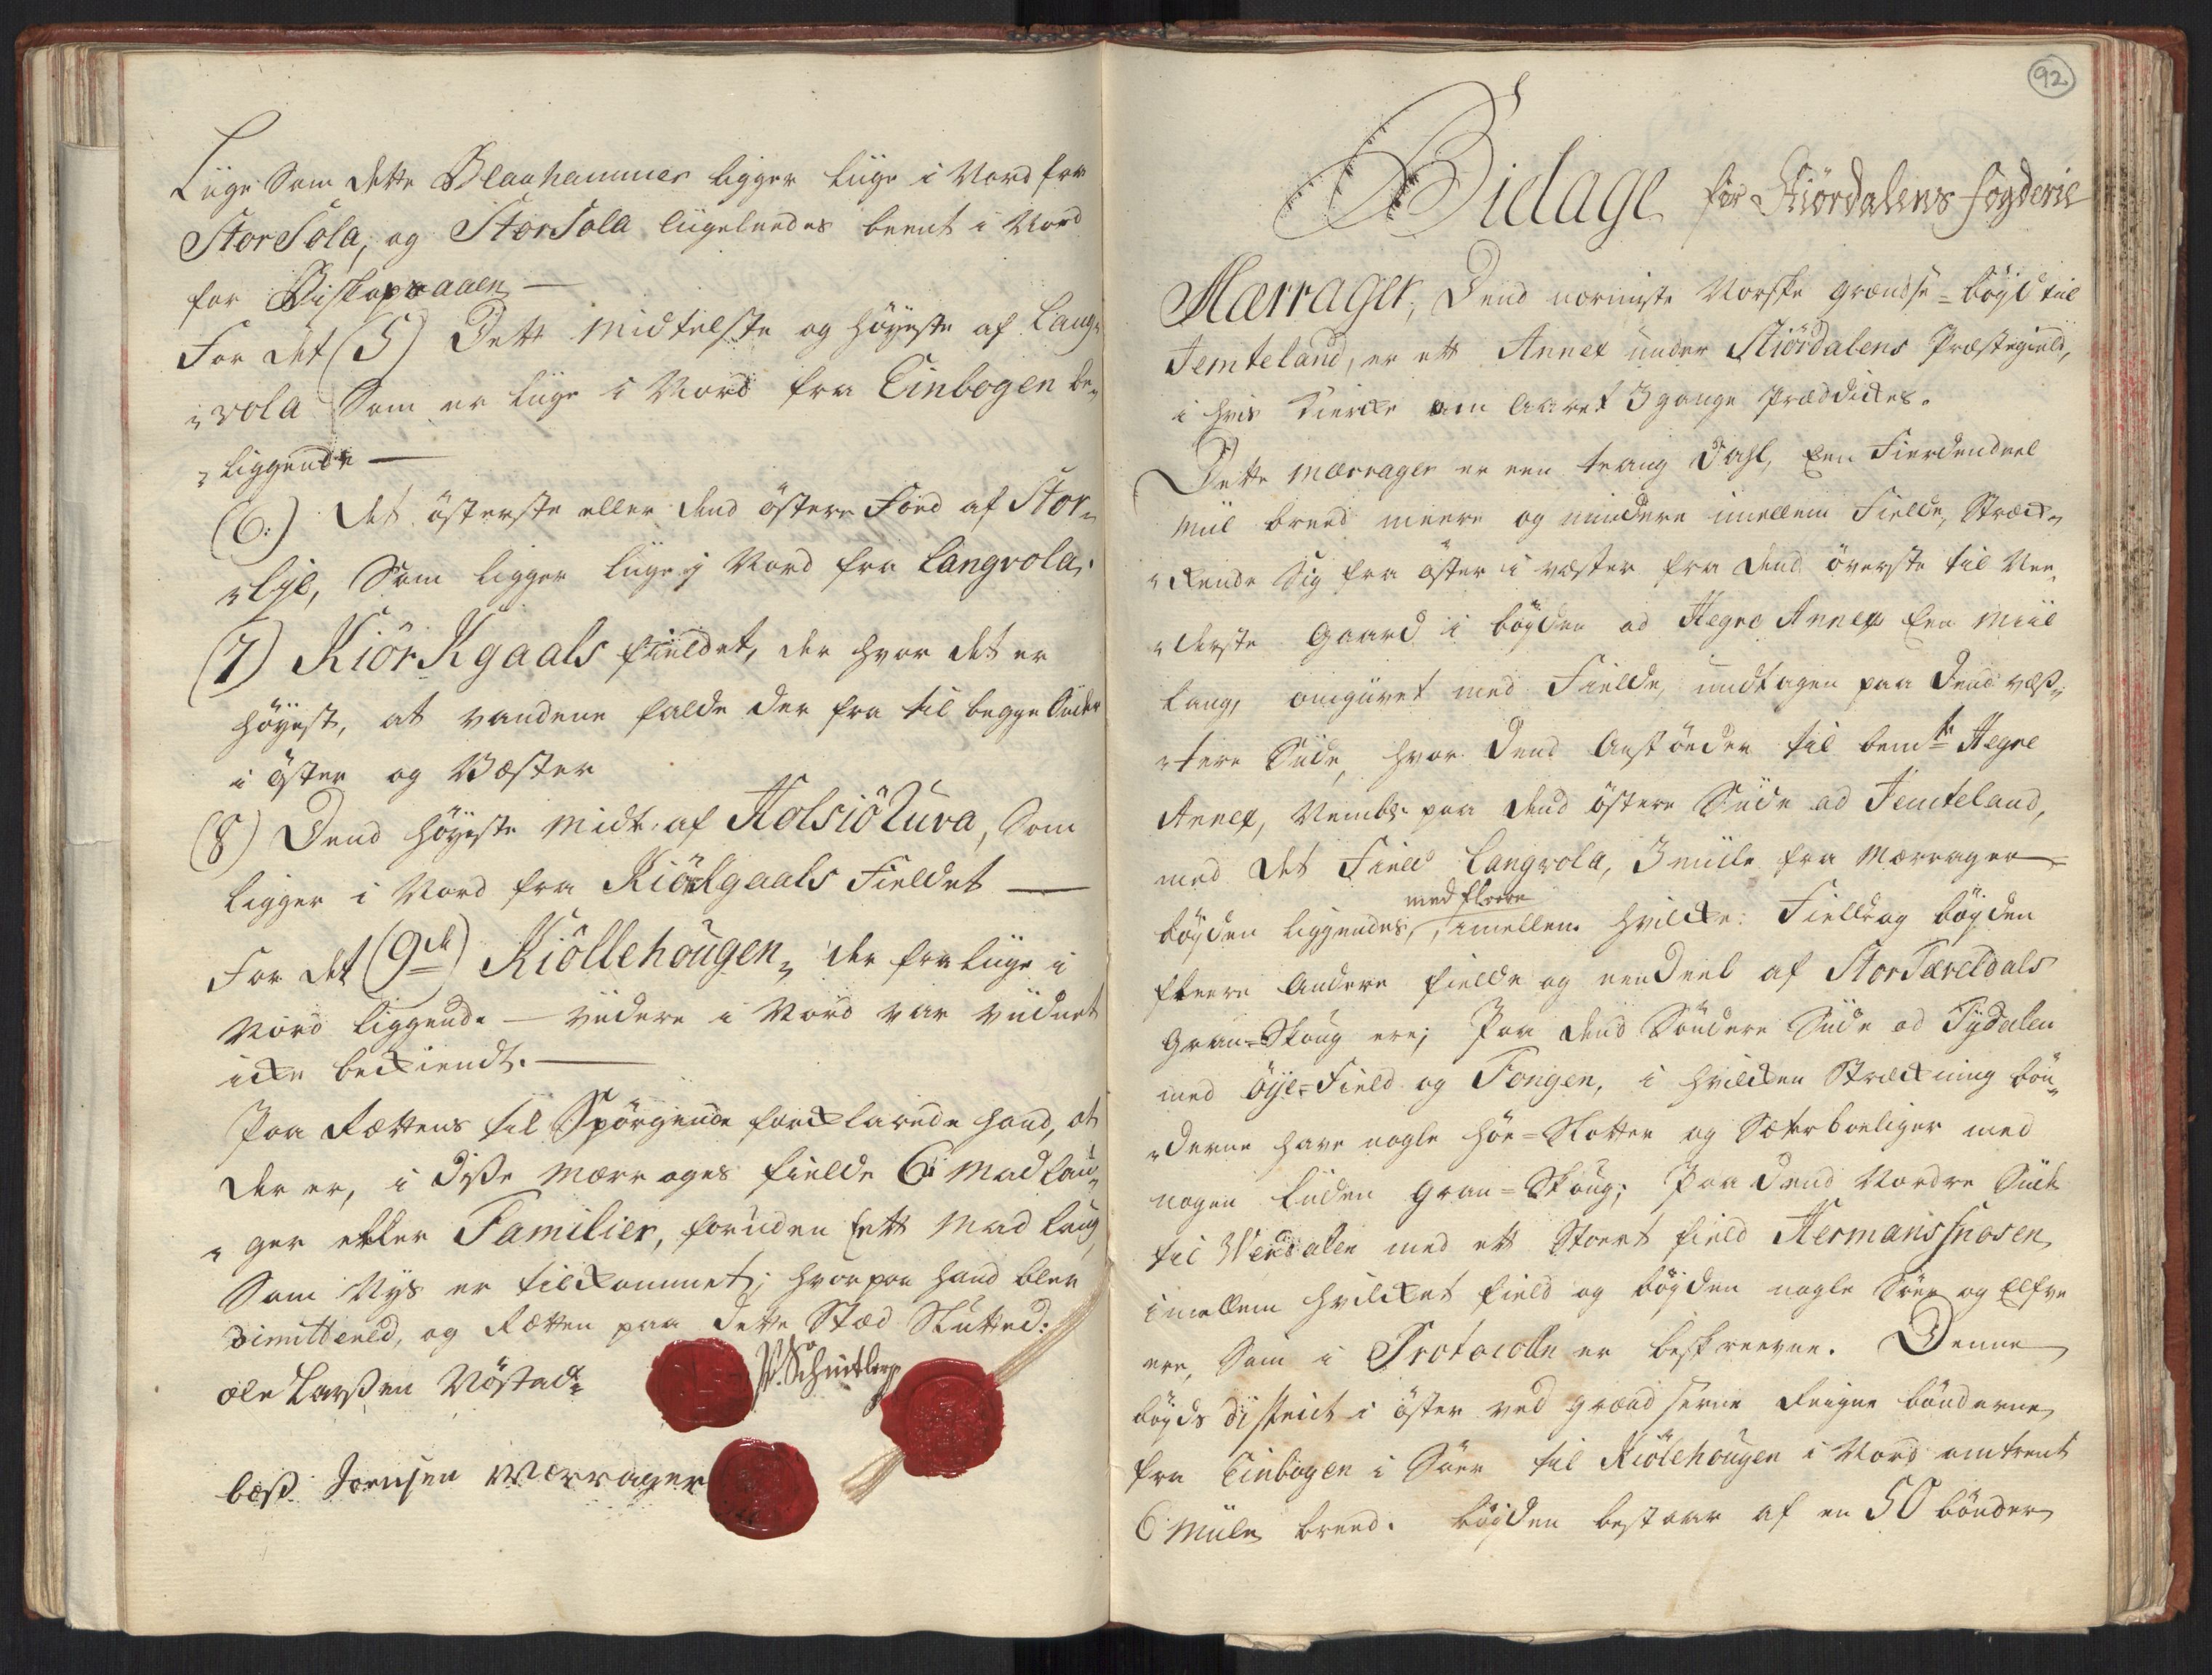 Liige Som dette Blaahammer ligger liige i Nord fra
StorSola, og StorSola liigeleedes beent i Nord
for Biskopsaaen —
For det (5) Dett midtelste og höyeste af Lang-
„vola Som er liige i Nord fra Einbogen be-
„liggende —
(6:) det österste eller dend östere Ende af Stor-
„lyl, Som ligger liige i Nord fra Langvola.
(7) KiörKgaals fieldet, der hvor det er
höyest, at vandene falde der fra til begge Siider
i öster og Væster
(8) Dend höyeste midt af KolsiöTuva, Som
ligger i Nord fra Kiörkgaals Fieldet —
For det (9de) Kiöllehougen, der fra liige i
Nord liggende — viidere i Nord var viidnet
icke beckiendt. —
Paa Rættens til Spörgende forcklarede hand, at
der er, i diße Mærragers fielde 6 Madlau-
„ger eller Familier, foruden Ett Mad laug
Som Nys er tilckommet; hvorpaa hand blev
dimitteret, og Rætten paa dette Stæd Slutted:
Ole Larßen Nöstad
P. Schnitler
Jonsen Mærrager
92
Bielage for Stiördalens fogderie
Mærrager, Dend nærmeste Norske grændse-böyd til
Jemteland, er ett Annex under Stiördalens Præstegield,
i hvis Kiercke om Aaret 3 gange Præddickes.
Dette Mærrager er een trang Dahl, Een Fierdendeel
Miil breed meere og mindere imellem Fielde, Stræck-
„ckende Sig fra öster i væster fra dend överste til Ne-
„derste Gaard i böyden ad Hegre Annex Een Miil
lang, omgivet med Fielde, undtagen paa dend væs-
„tere Siide, hvor dend Anstöeder til bemte Hegre
Annex, Nembl. paa dend östere Siide ad Jemteland,
med det Field Langvola, 3 miile fra Mærrager-
böyden liggendes, med fleere imellem hvilcke Field og böyden
fleere Andere fielde og een Deel af StorTæveldals
Gran-Skoug ere; Paa dend Söndere Siide ad Tydalen
med Öyl-Field og Fongen, i hvilcken Stræckning bön-
„derne have nogle Höe-Slotter og Sæterboeliger med
nogen liiden gran-Skoug; Paa dend Nordre Siide
til Werdalen med ett Stoert field Hermanssnosen,
imellem hvilcket field og böyden nogle Söer og Elfve
ere, Som i Protocolln er beskreevne. Denne
böyds district i öster ved grændserne Reigne bönderne
fra Einbogen i Söer til Kiölehougen i Nord omtrent
6 Miile breed. böyden bestaar af en 50 bönder